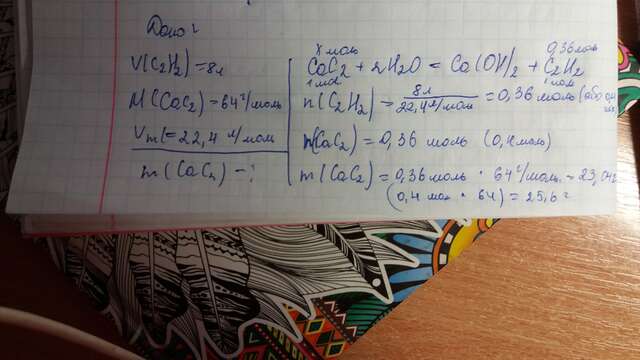 Дано:
V(C2H2) = 8л
M(CaC2) = 64 г/моль
Vm = 22,4 л/моль
m(CaC2) - ?
x моль 0,36 моль
CaC2 + 2H2O = Ca(OH)2 + C2H2
1 моль 1 моль
n(C2H2) = 8 л / 22,4 л/моль = 0,36 моль
n(CaC2) = 0,36 моль (0,4 моль)
m(CaC2) = 0,36 моль · 64 г/моль = 23,04
(0,4 моль · 64) = 25,6 г